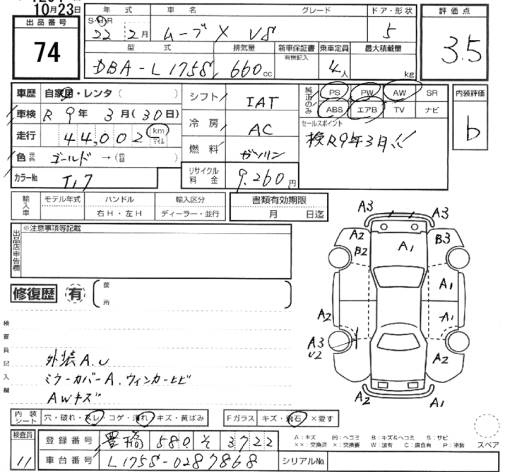 10月23日
出品番号
74
年式 車名 グレード ドア・形状
S・H・R
22年 2月 ムーブ X VS 5
評価点
3.5
型式 排気量 新車保証書 乗車定員 最大積載量
有無記入
DBA-L175S 660cc 4人 kg
車歴 自家用・レンタ
車検 R 9年 3月(30日)
走行 44,002 km マイル
色 ゴールド→
カラーNo T17
シフト IAT
冷房 AC
燃料 ガソリン
リサイクル料金 9,260円
純正のみ
PS PW AW SR
ABS エアB TV ナビ
セールスポイント
検R9年3月!!
内装評価
b
輸入車 モデル年式 ハンドル 輸入区分
右H・左H ディーラー・並行
書類有効期限
月 日迄
出品店申告欄
※注意事項等記載
修復歴 有 箇所
検査員記入欄
外装A.U
ミラーカバーA.ウィンカーヒビ
AWキズ
A3
A2 A1 B3
B2
A2 A1 A1
A3 A1
U2
A2 A1 A2
A3
内装シート 穴・破れ・スレ・コゲ・汚れ・キズ・黄ばみ
Fガラス キズ・飛石・×要す
検査員 11
登録番号 豊橋 580 そ 3722
車台番号 L175S-0287868
シリアルNo
スペア